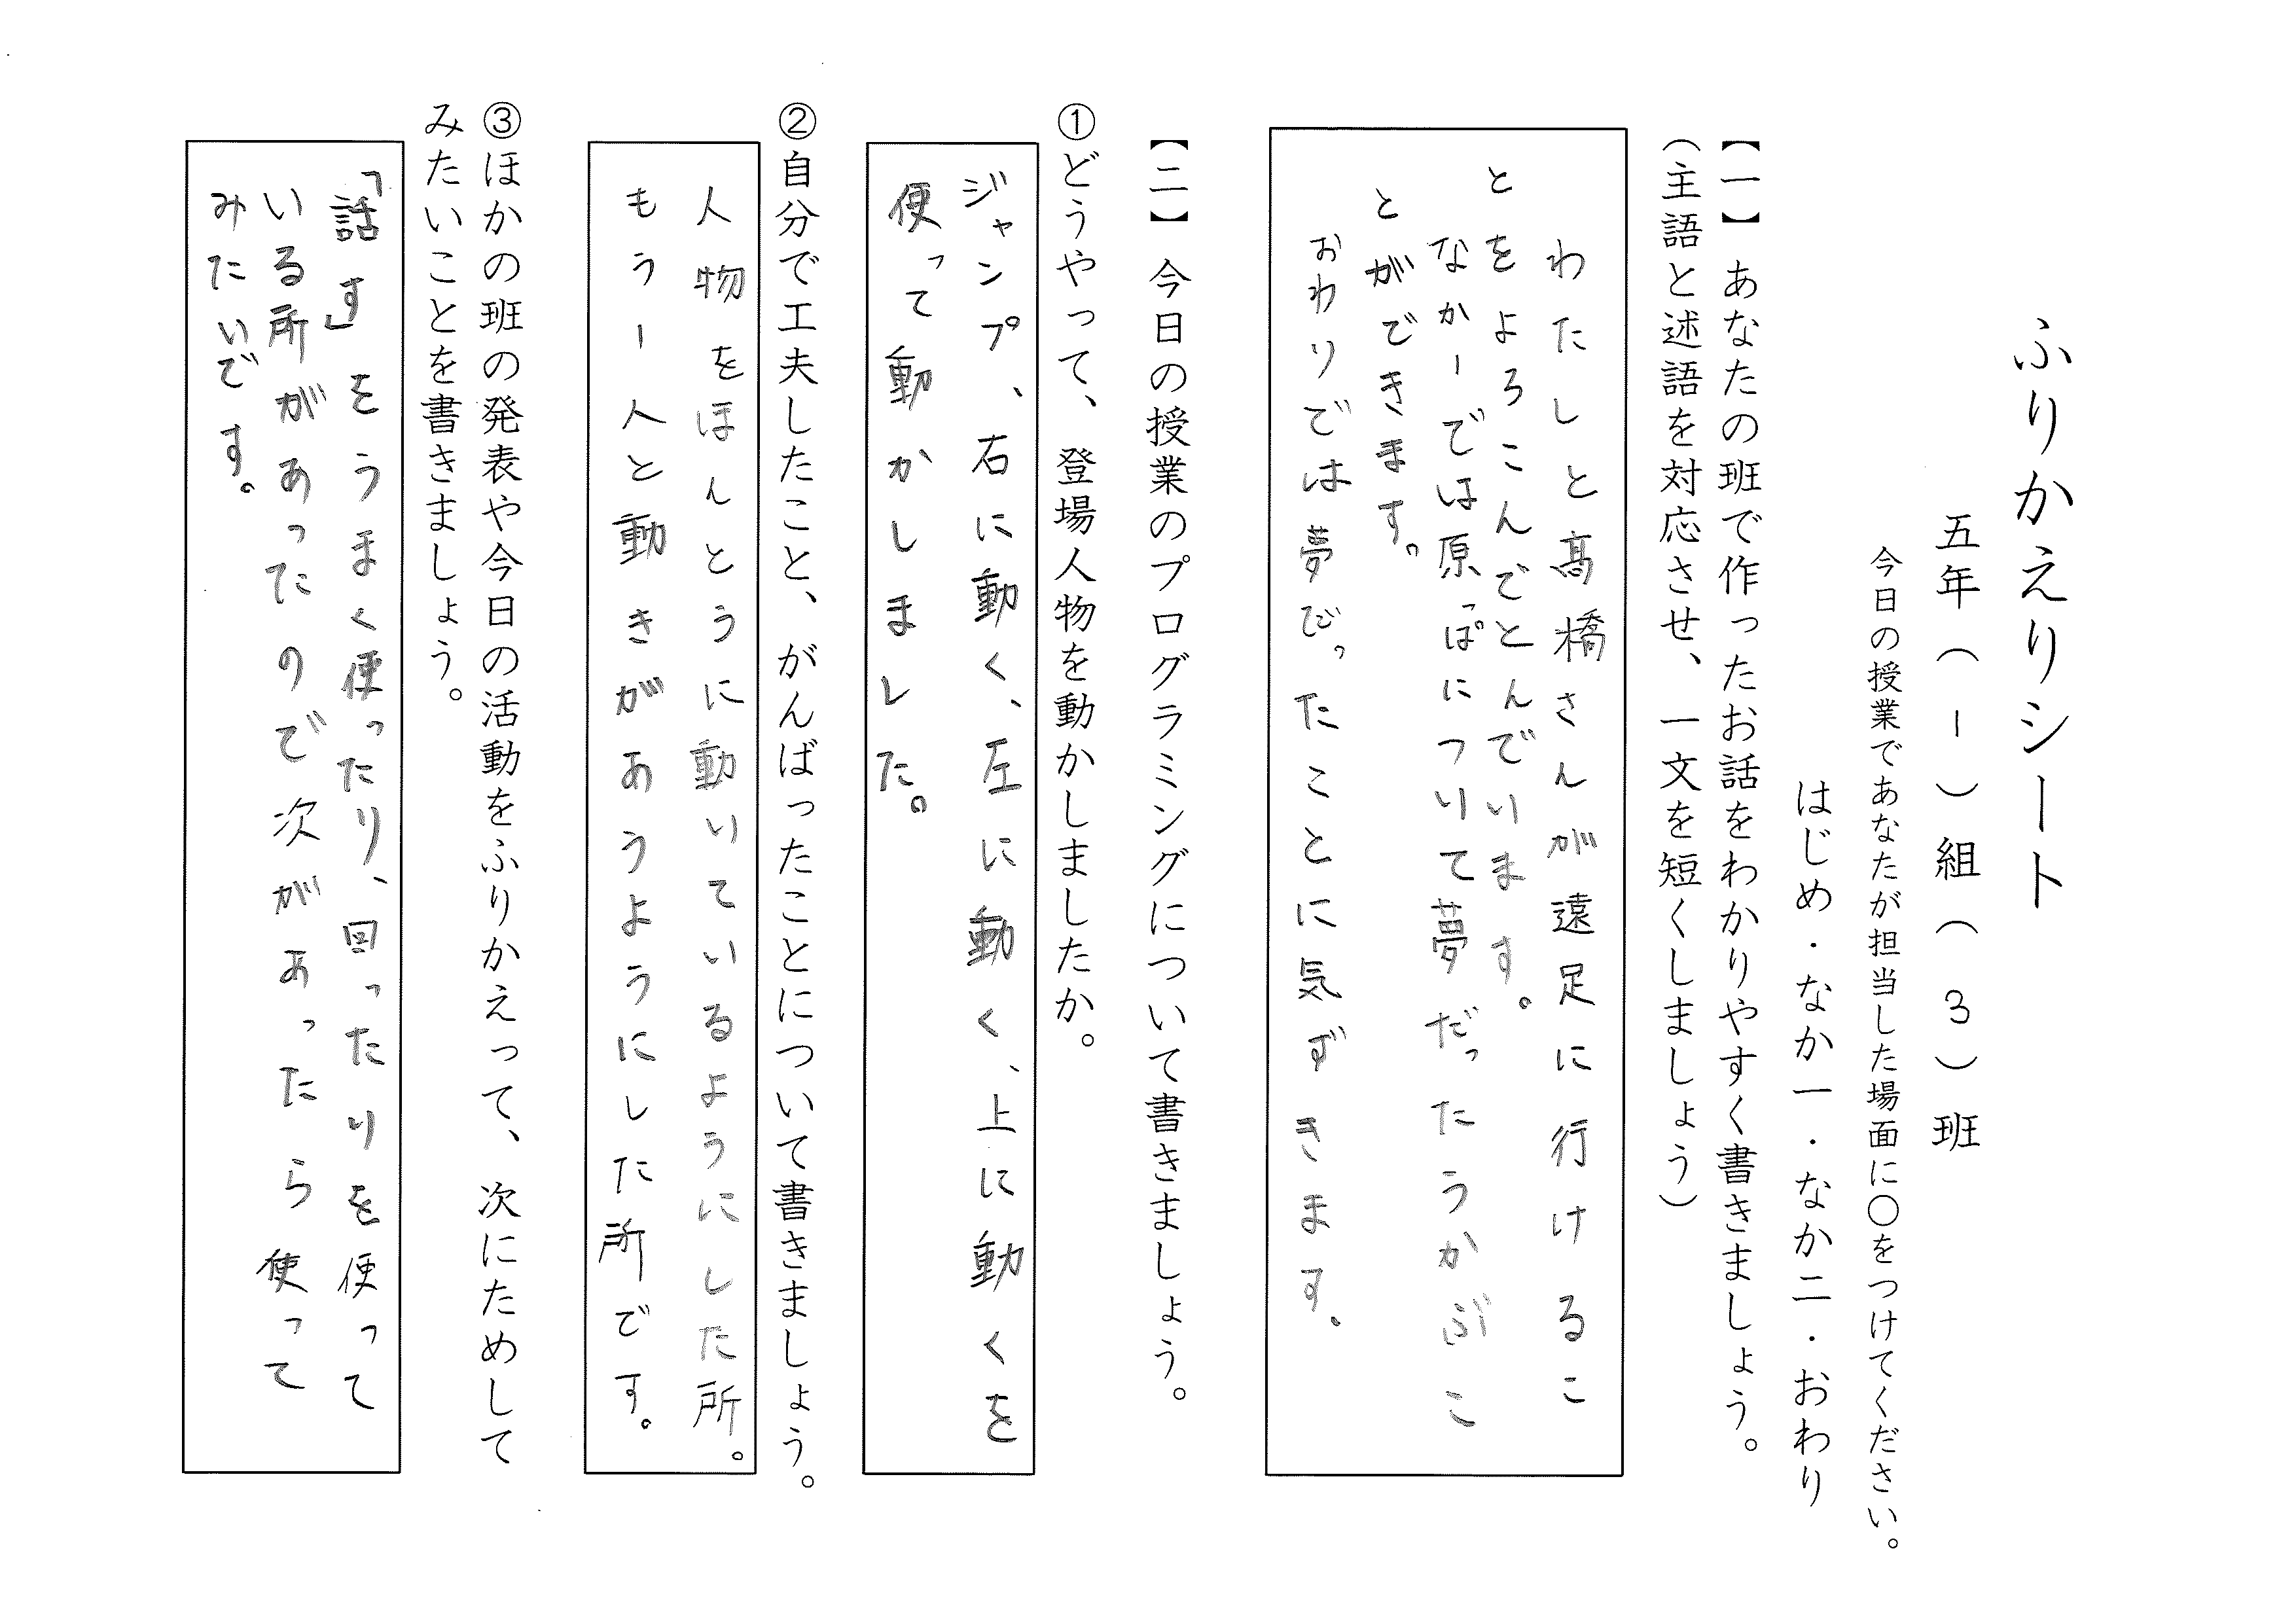 ふりかえりシート
五年（１）組（３）班
今日の授業であなたが担当した場面に〇をつけてください。
はじめ・なか一・なか二・おわり
【一】あなたの班で作ったお話をわかりやすく書きましょう。
（主語と述語を対応させ、一文を短くしましょう）
わたしと髙橋さんが遠足に行けるこ
とをよろこんでとんでいます。
なか一では原っぱについて夢だったうかぶこ
とができます。
おわりでは夢びったことに気ずきます。
【二】今日の授業のプログラミングについて書きましょう。
①どうやって、登場人物を動かしましたか。
ジャンプ、右に動く、左に動く、上に動くを
使って動かしました。
②自分で工夫したこと、がんばったことについて書きましょう。
人物をほんとうに動いているようにした所。
もう一人と動きがあうようにした所です。
③ほかの班の発表や今日の活動をふりかえって、次にためして
みたいことを書きましょう。
「話す」をうまく使ったり、回ったりを使って
いる所があったので次があったら使って
みたいです。